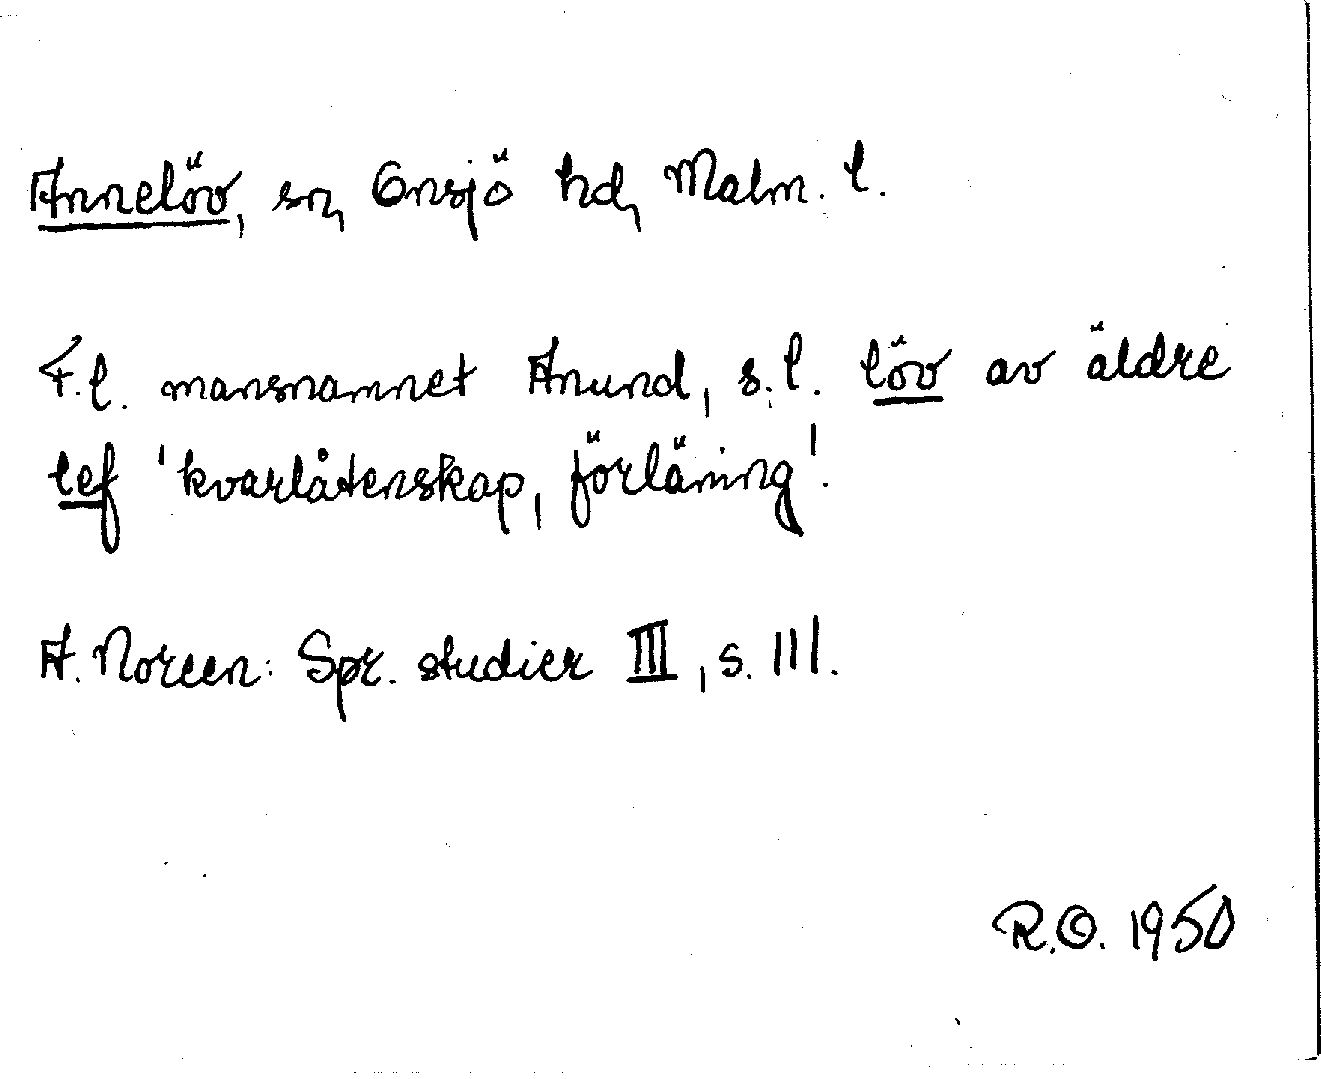 Annelöv, sn, Onsjö hd, Malm. l.
F.l. mansnamnet Anund, s.l. löv av äldre
lef 'kvarlåtenskap, förläning'.
A. Noreen: Spr. studier III, s. 111.
R.O. 1950